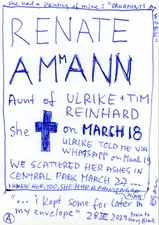 she had a painting of mine: "ORNAMENTS AT WORK"
RENATE
AMMANN
Aunt of ULRIKE + TIM
REINHARD
she on MARCH 18
ULRIKE TOLD ME VIA
WHATSAPP on March 19
WE SCATTERED HER ASHES IN
CENTRAL PARK MARCH 27...
I KNEW HER TOO, SHE HAD A PAINTING
"... i kept some for later in
my envelope" 28 III 2024
train to
A